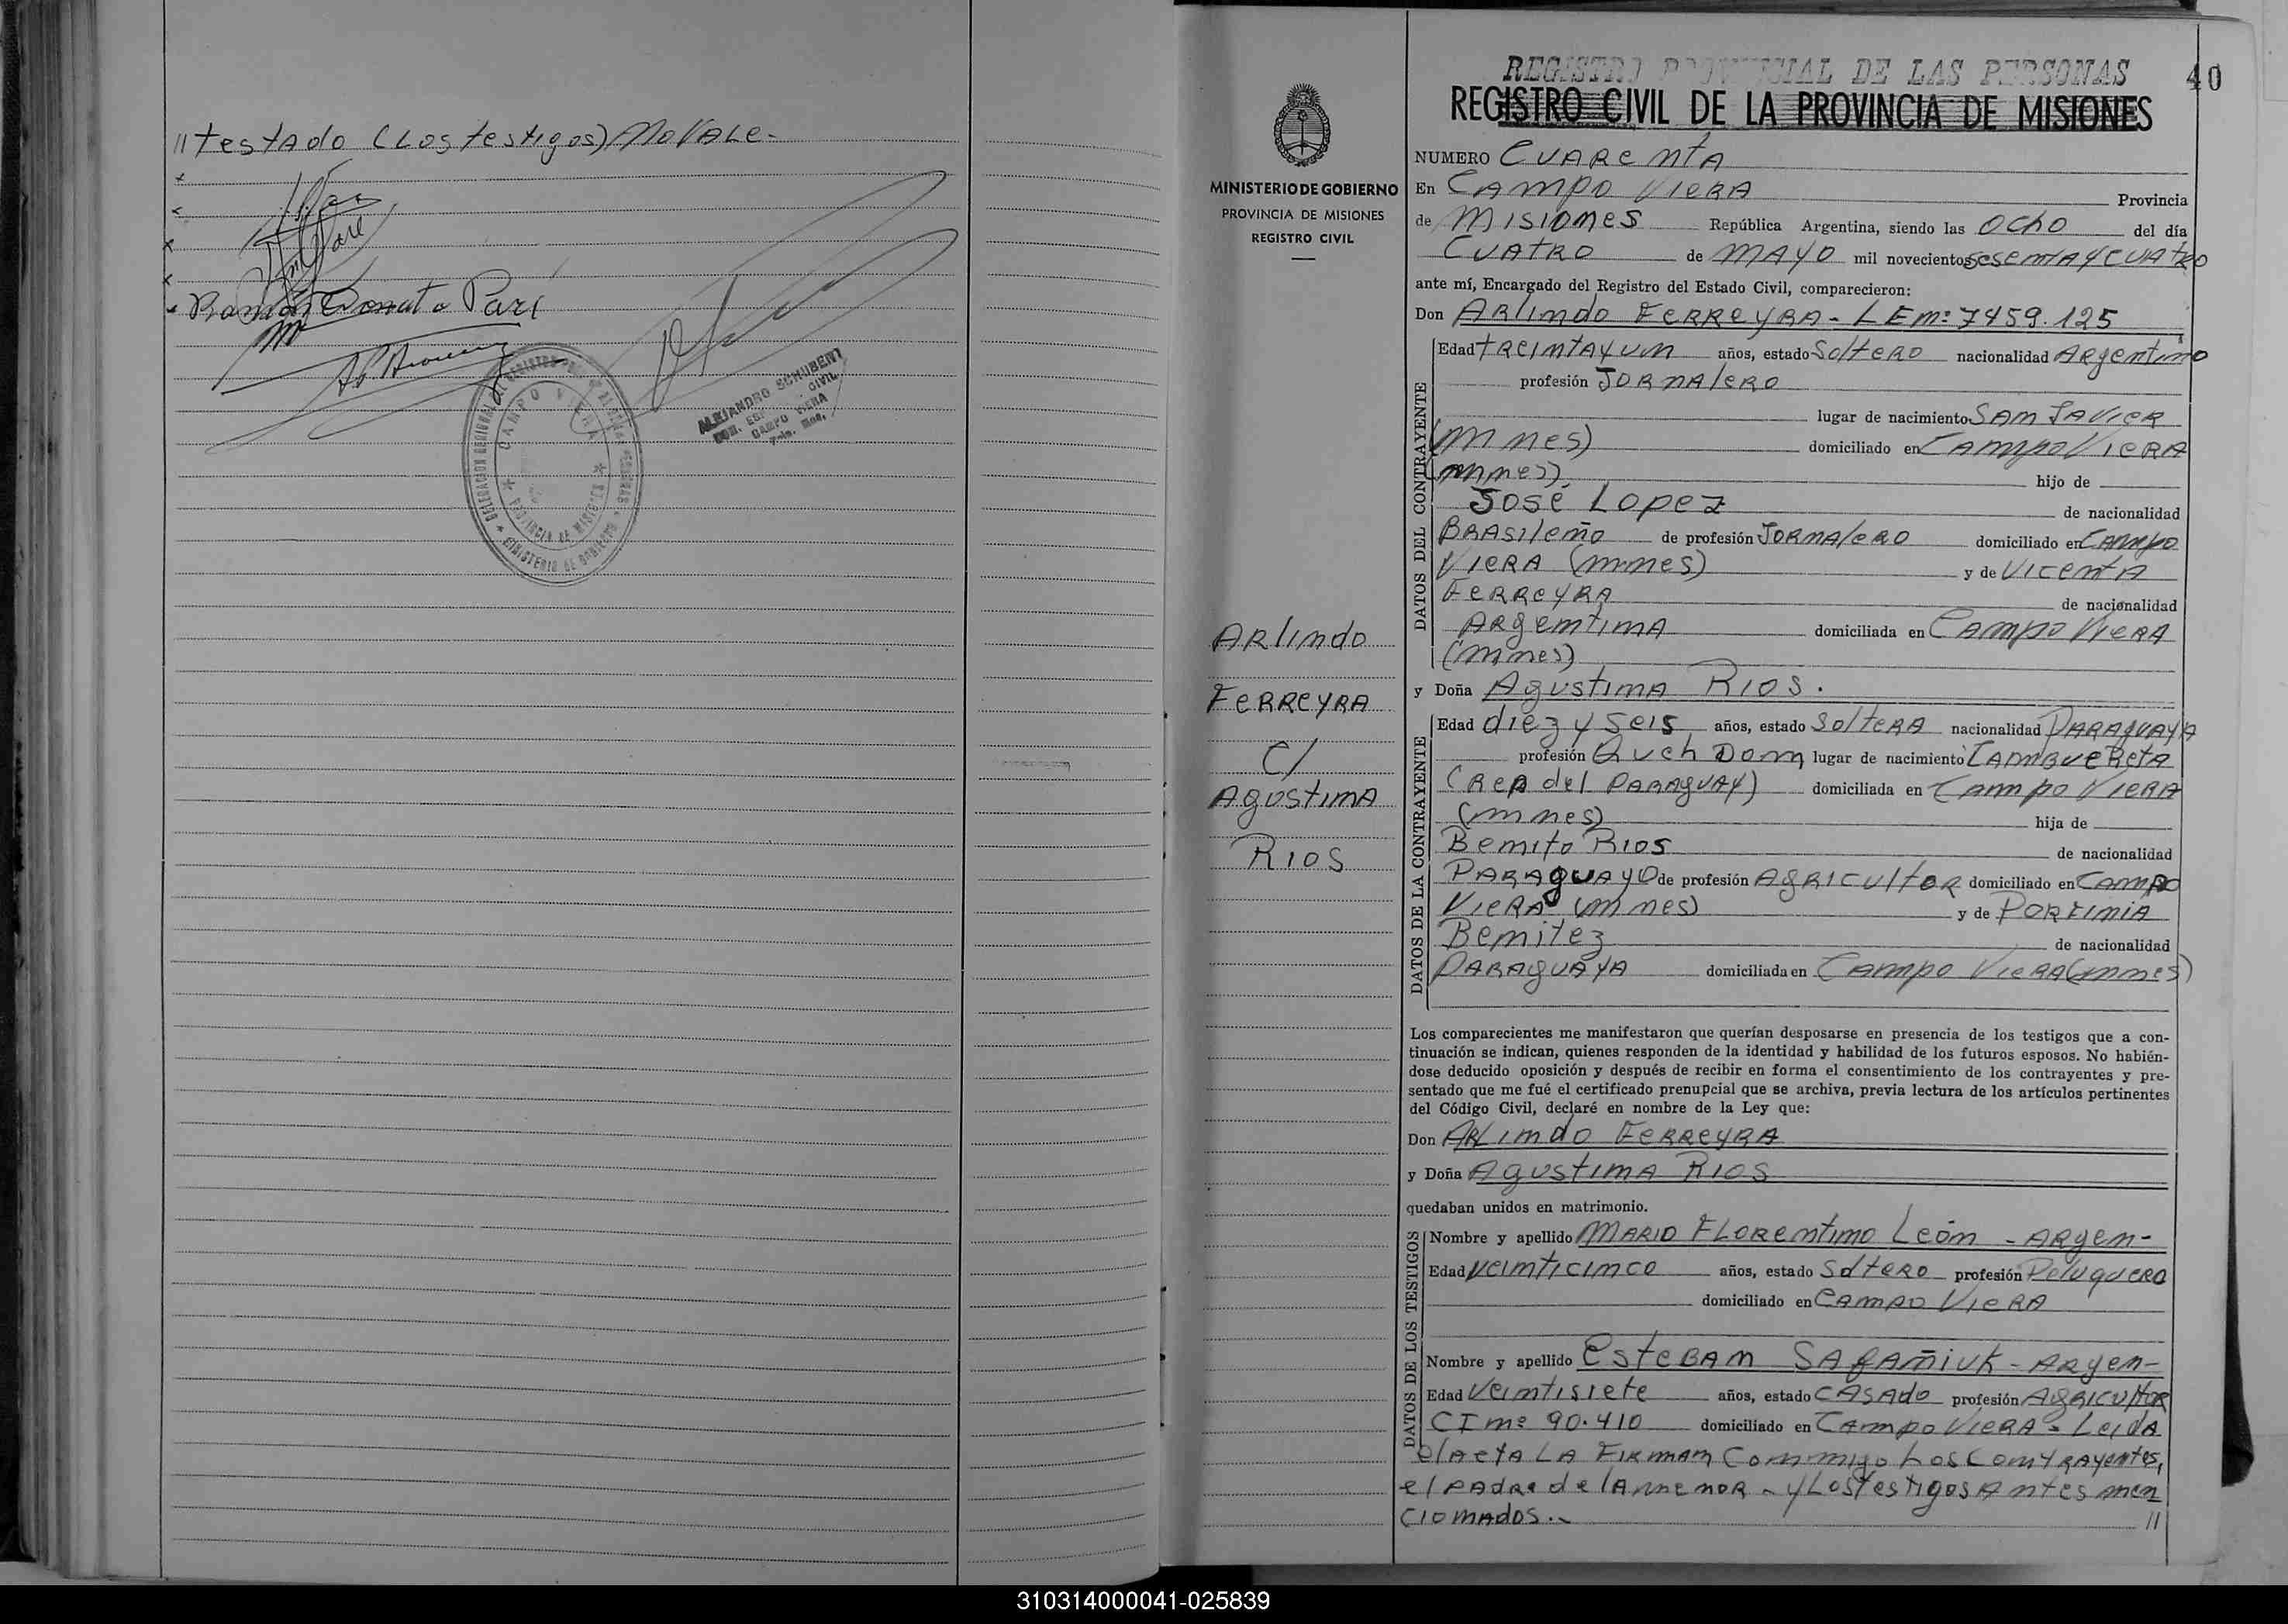 // testado (Los testigos) No VALE.-
Ramón Donato Pari
ALEJANDRO SCHUBERT
CIVIL
CAMPO VIERA
CAMPO VIERA
PROVINCIA DE MISIONES
MINISTERIO DE GOBIERNO
40
REGISTRO PROVINCIAL DE LAS PERSONAS
REGISTRO CIVIL DE LA PROVINCIA DE MISIONES
MINISTERIO DE GOBIERNO
PROVINCIA DE MISIONES
REGISTRO CIVIL
ARlindo
FERREYRA
C/
AGOSTINA
RIOS
NUMERO CUARENTA
En CAMPO VIERA Provincia
de MISIONES República Argentina, siendo las OCHO del día
CUATRO de MAYO mil novecientos SESENTA Y CUATRO
ante mí, Encargado del Registro del Estado Civil, comparecieron:
Don ARlindo FERREYRA - LEnº 7459.125
DATOS DEL CONTRAYENTE
Edad TREINTAYUN años, estado SolteRO nacionalidad ARgentino
profesión JORNAleRO
lugar de nacimiento SAN JAVIER
(Mnes) domiciliado en CAMPO VIERA
(mnes). hijo de
José Lopez de nacionalidad
BRASileño de profesión JORNAleRO domiciliado en CAMPO
VIERA (mnes) y de VICENTA
FERREYRA de nacionalidad
ARGENTINA domiciliada en CAMPO VIERA
(mnes)
y Doña Agustina RIOS.
DATOS DE LA CONTRAYENTE
Edad diez y seis años, estado SolteRA nacionalidad PARAGUAYA
profesión Queh Dom lugar de nacimiento CAMBUERETA
(Rep del PARAGUAY) domiciliada en CAMPO VIERA
(mnes) hija de
Benito Rios de nacionalidad
PARAGUAYO de profesión AGRICULTOR domiciliado en CAMPO
VIERA (mnes) y de PORFINIA
Benitez de nacionalidad
PARAGUAYA domiciliada en CAMPO VIERA (mnes)
Los comparecientes me manifestaron que querían desposarse en presencia de los testigos que a con-
tinuación se indican, quienes responden de la identidad y habilidad de los futuros esposos. No habién-
dose deducido oposición y después de recibir en forma el consentimiento de los contrayentes y pre-
sentado que me fué el certificado prenupcial que se archiva, previa lectura de los artículos pertinentes
del Código Civil, declaré en nombre de la Ley que:
Don ARLindo FERREYRA
y Doña Agustina RIOS
quedaban unidos en matrimonio.
DATOS DE LOS TESTIGOS
Nombre y apellido MARIO FLORentino León - ARgen-
Edad veinticinco años, estado SolteRO profesión PeluqueRO
domiciliado en CAMPO VIERA
Nombre y apellido ESTEBAN SAFAÑiuk - ARgen-
Edad Veintisiete años, estado CASAdo profesión AGRICULTOR
CI nº 90.410 domiciliado en CAMPO VIERA - LeiDA
el Acta LA FIRMAN Conmigo Los ContRAyentes,
el PADRe de lA menor - y Los testigos Antes men
cionAdos.- //
310314000041-025839